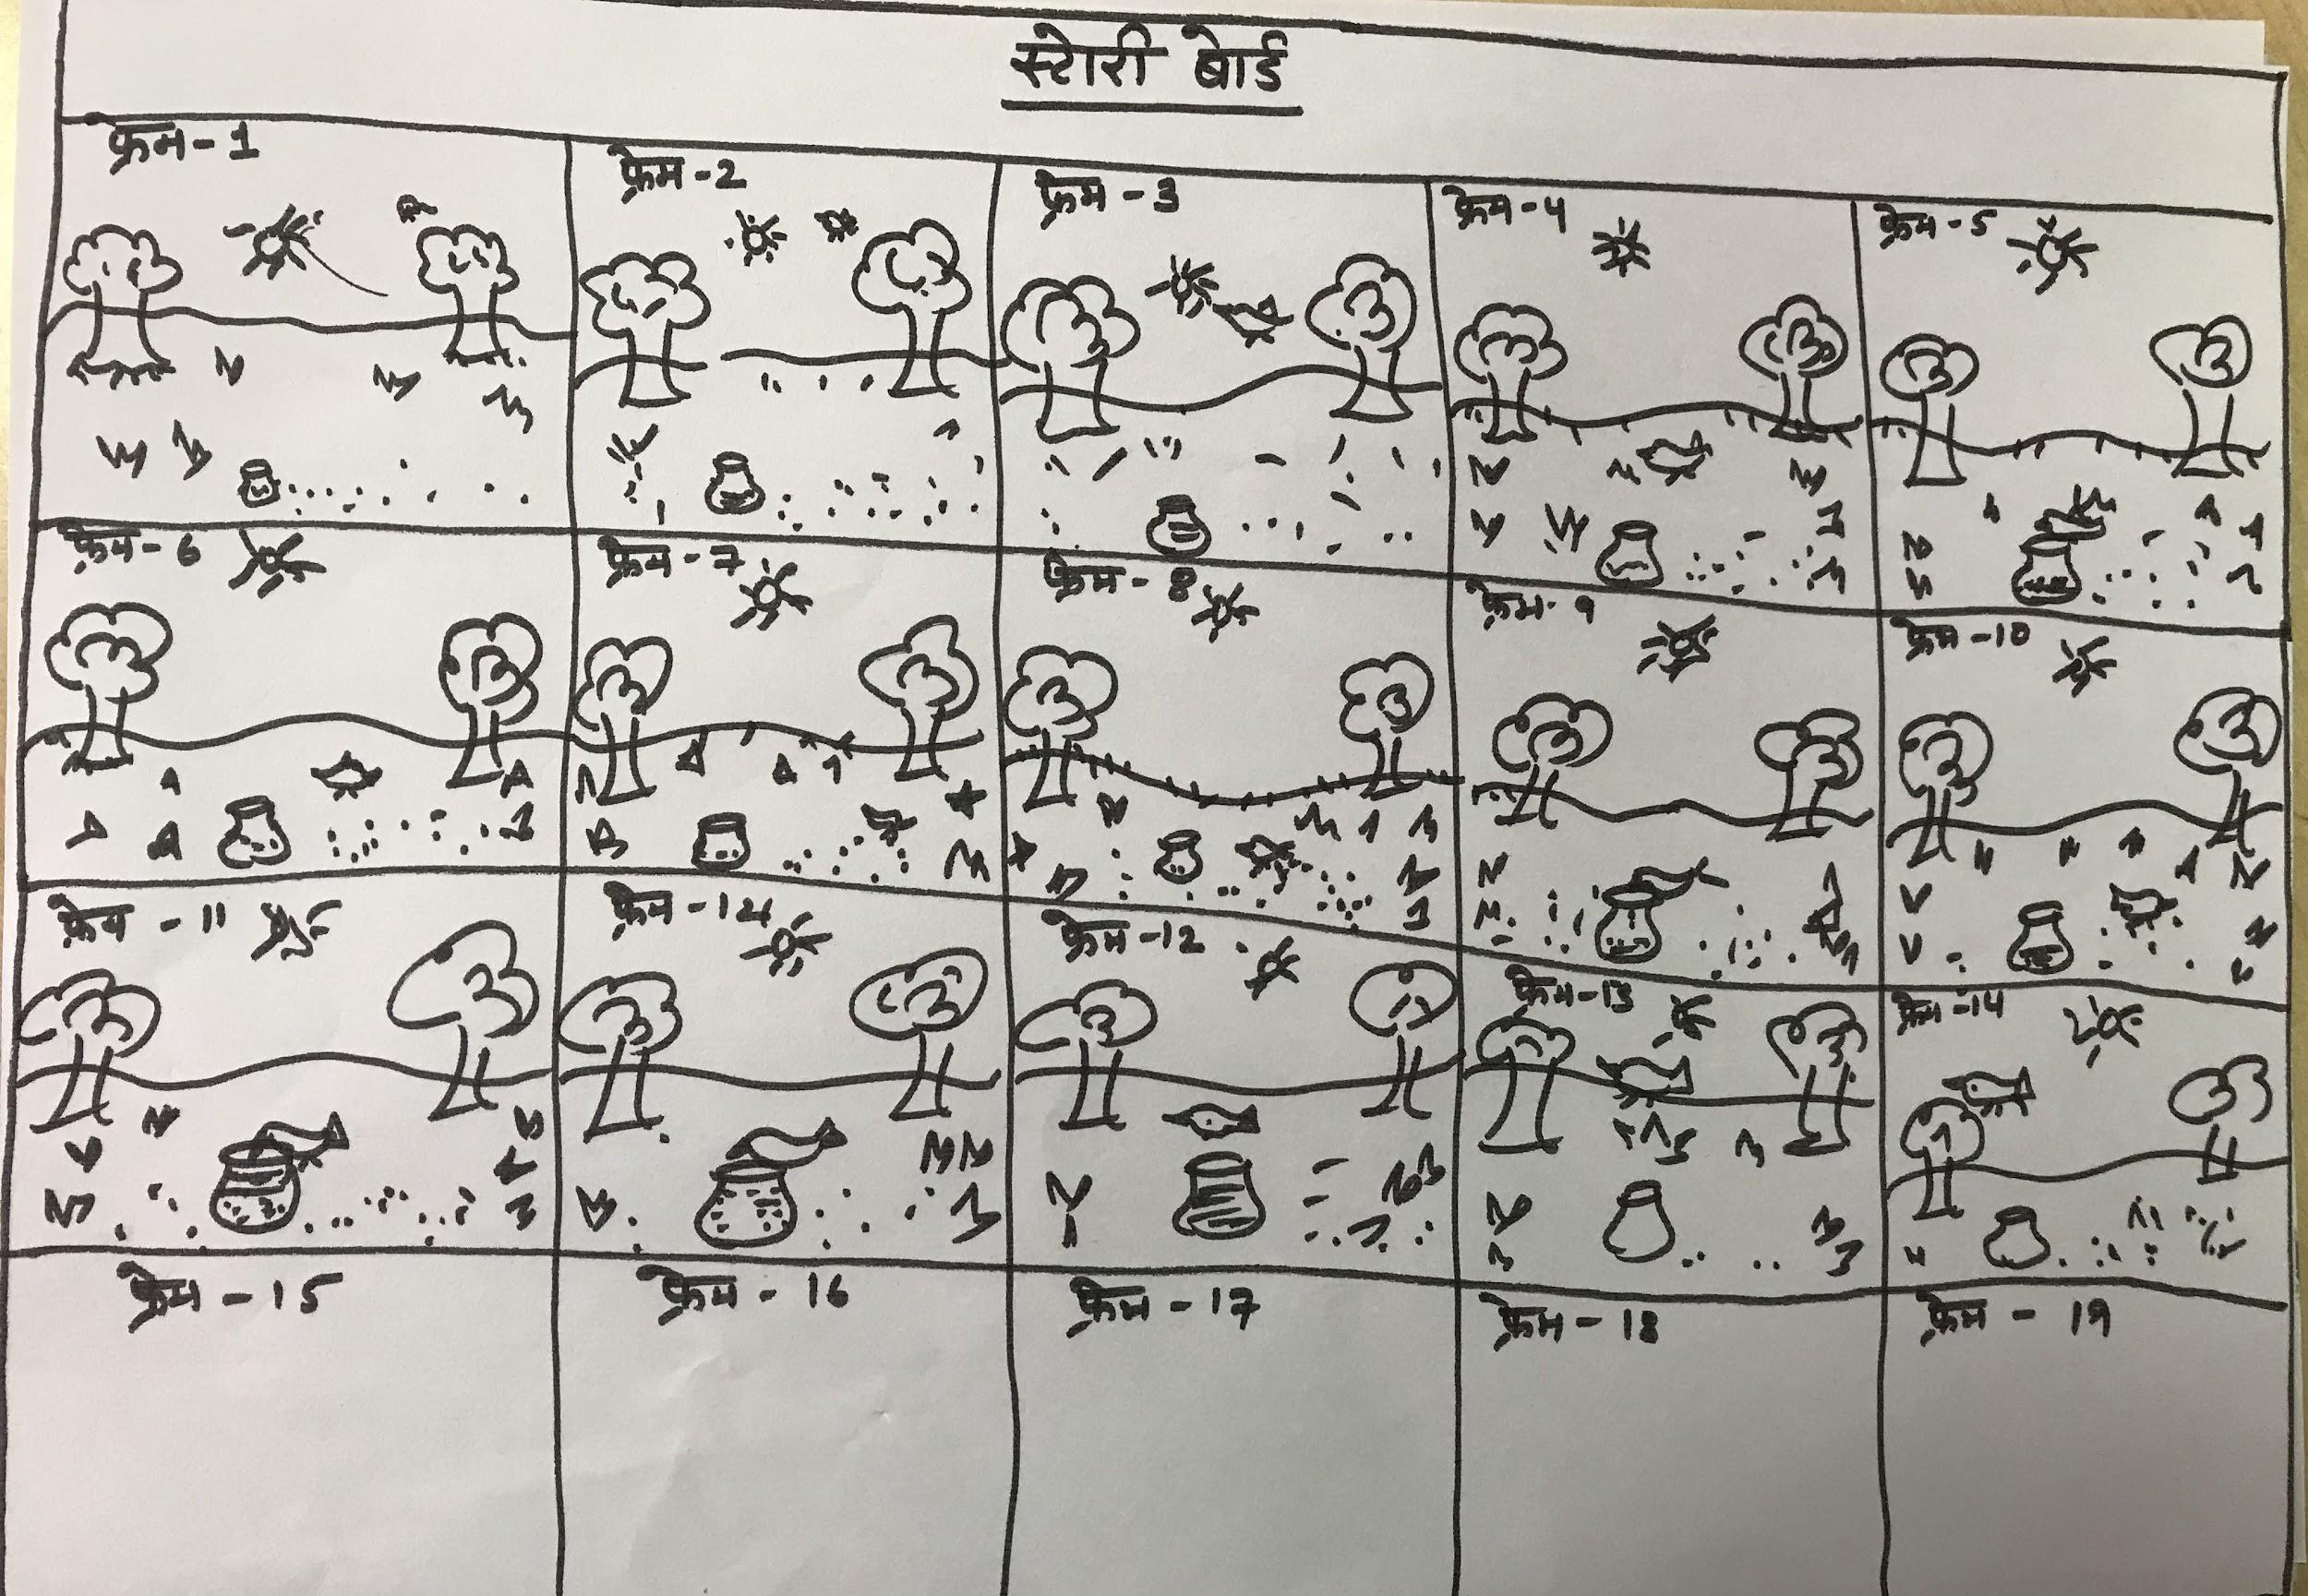 स्टोरी बोर्ड
फ्रेम-1
फ्रेम-2
फ्रेम-3
फ्रेम-4
फ्रेम-5
फ्रेम-6
फ्रेम-7
फ्रेम-8
फ्रेम-9
फ्रेम-10
फ्रेम-11
फ्रेम-12
फ्रेम-13
फ्रेम-14
फ्रेम-15
फ्रेम-16
फ्रेम-17
फ्रेम-18
फ्रेम-19